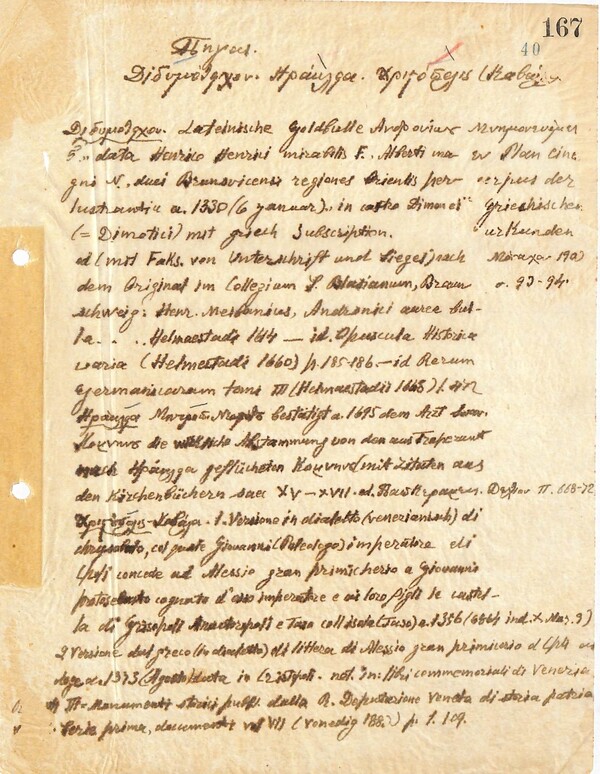 167
40
Πηγαι.
Διδυμότειχον. Ηράκλεια. Χριστόπολις (Καβάλα
Διδυμότειχον. Lateinische Goldbulle Ανδρονίκου Μνημονευόμεν
data Henrico Henrici mirabilis F. Alberti ma εν Plan eine
gni N. duci Brunsvicensi regiones Orientis per- corpus der
lustrantia a. 1330 (6 januar).. in castro Dimonci griechischen
(= Dimotici) mit griech Subscription. urkunden
ed (mit Faks. von Unterschrift und Siegel) nach Μόναχον 1903
dem Original im Collegium S. Blasianum, Braun σ. 93-94.
schweig: Henr. Meibomius, Andronici aurea bul-
la. . . . Helmaestadi 1614 — id. Opuscula Historica
varia (Helmestadi 1660) p. 185-186. — id Rerum
Germanicarum tomi III (Helmaestadii 1668)
Ηράκλεια bestätigt a. 1695 dem Arzt
Κομνηνος die Abstammung von den aus Trapezunt
nach Ηράκλεια geflüchteten Κομνηνοι mit Zitaten aus
den Kirchenbüchern saec XV – XVII. ed. Δελτιον Π. 668-72
Χριστόπολις-Καβάλα. 1. Versione in dialetto (venezianisch) di
chrysobolo, col quale Giovanni (Paleologo) imperatore di
Cpli concede ad Alessio gran primicherio a Giovanni
protosebasto cognato d'esso imperatore e ai loro figli le castel-
la di Grisopoli Anactoropoli e Tasso coll'isola (Taso) a. 1356 (6864 ind. X Mar. 9)
2 Versione dal greco (in dialetto) di littera di Alessio gran primicerio al
doge a. 1373 (Agosto) data in Cristopoli. not. Im libri commemoriali di Venezia
III = Monumenti storici publ. dalla R. Deputazione veneta di storia patria
Serie prima, documenti vol VII (Venedig 188.) p. 1. 109.